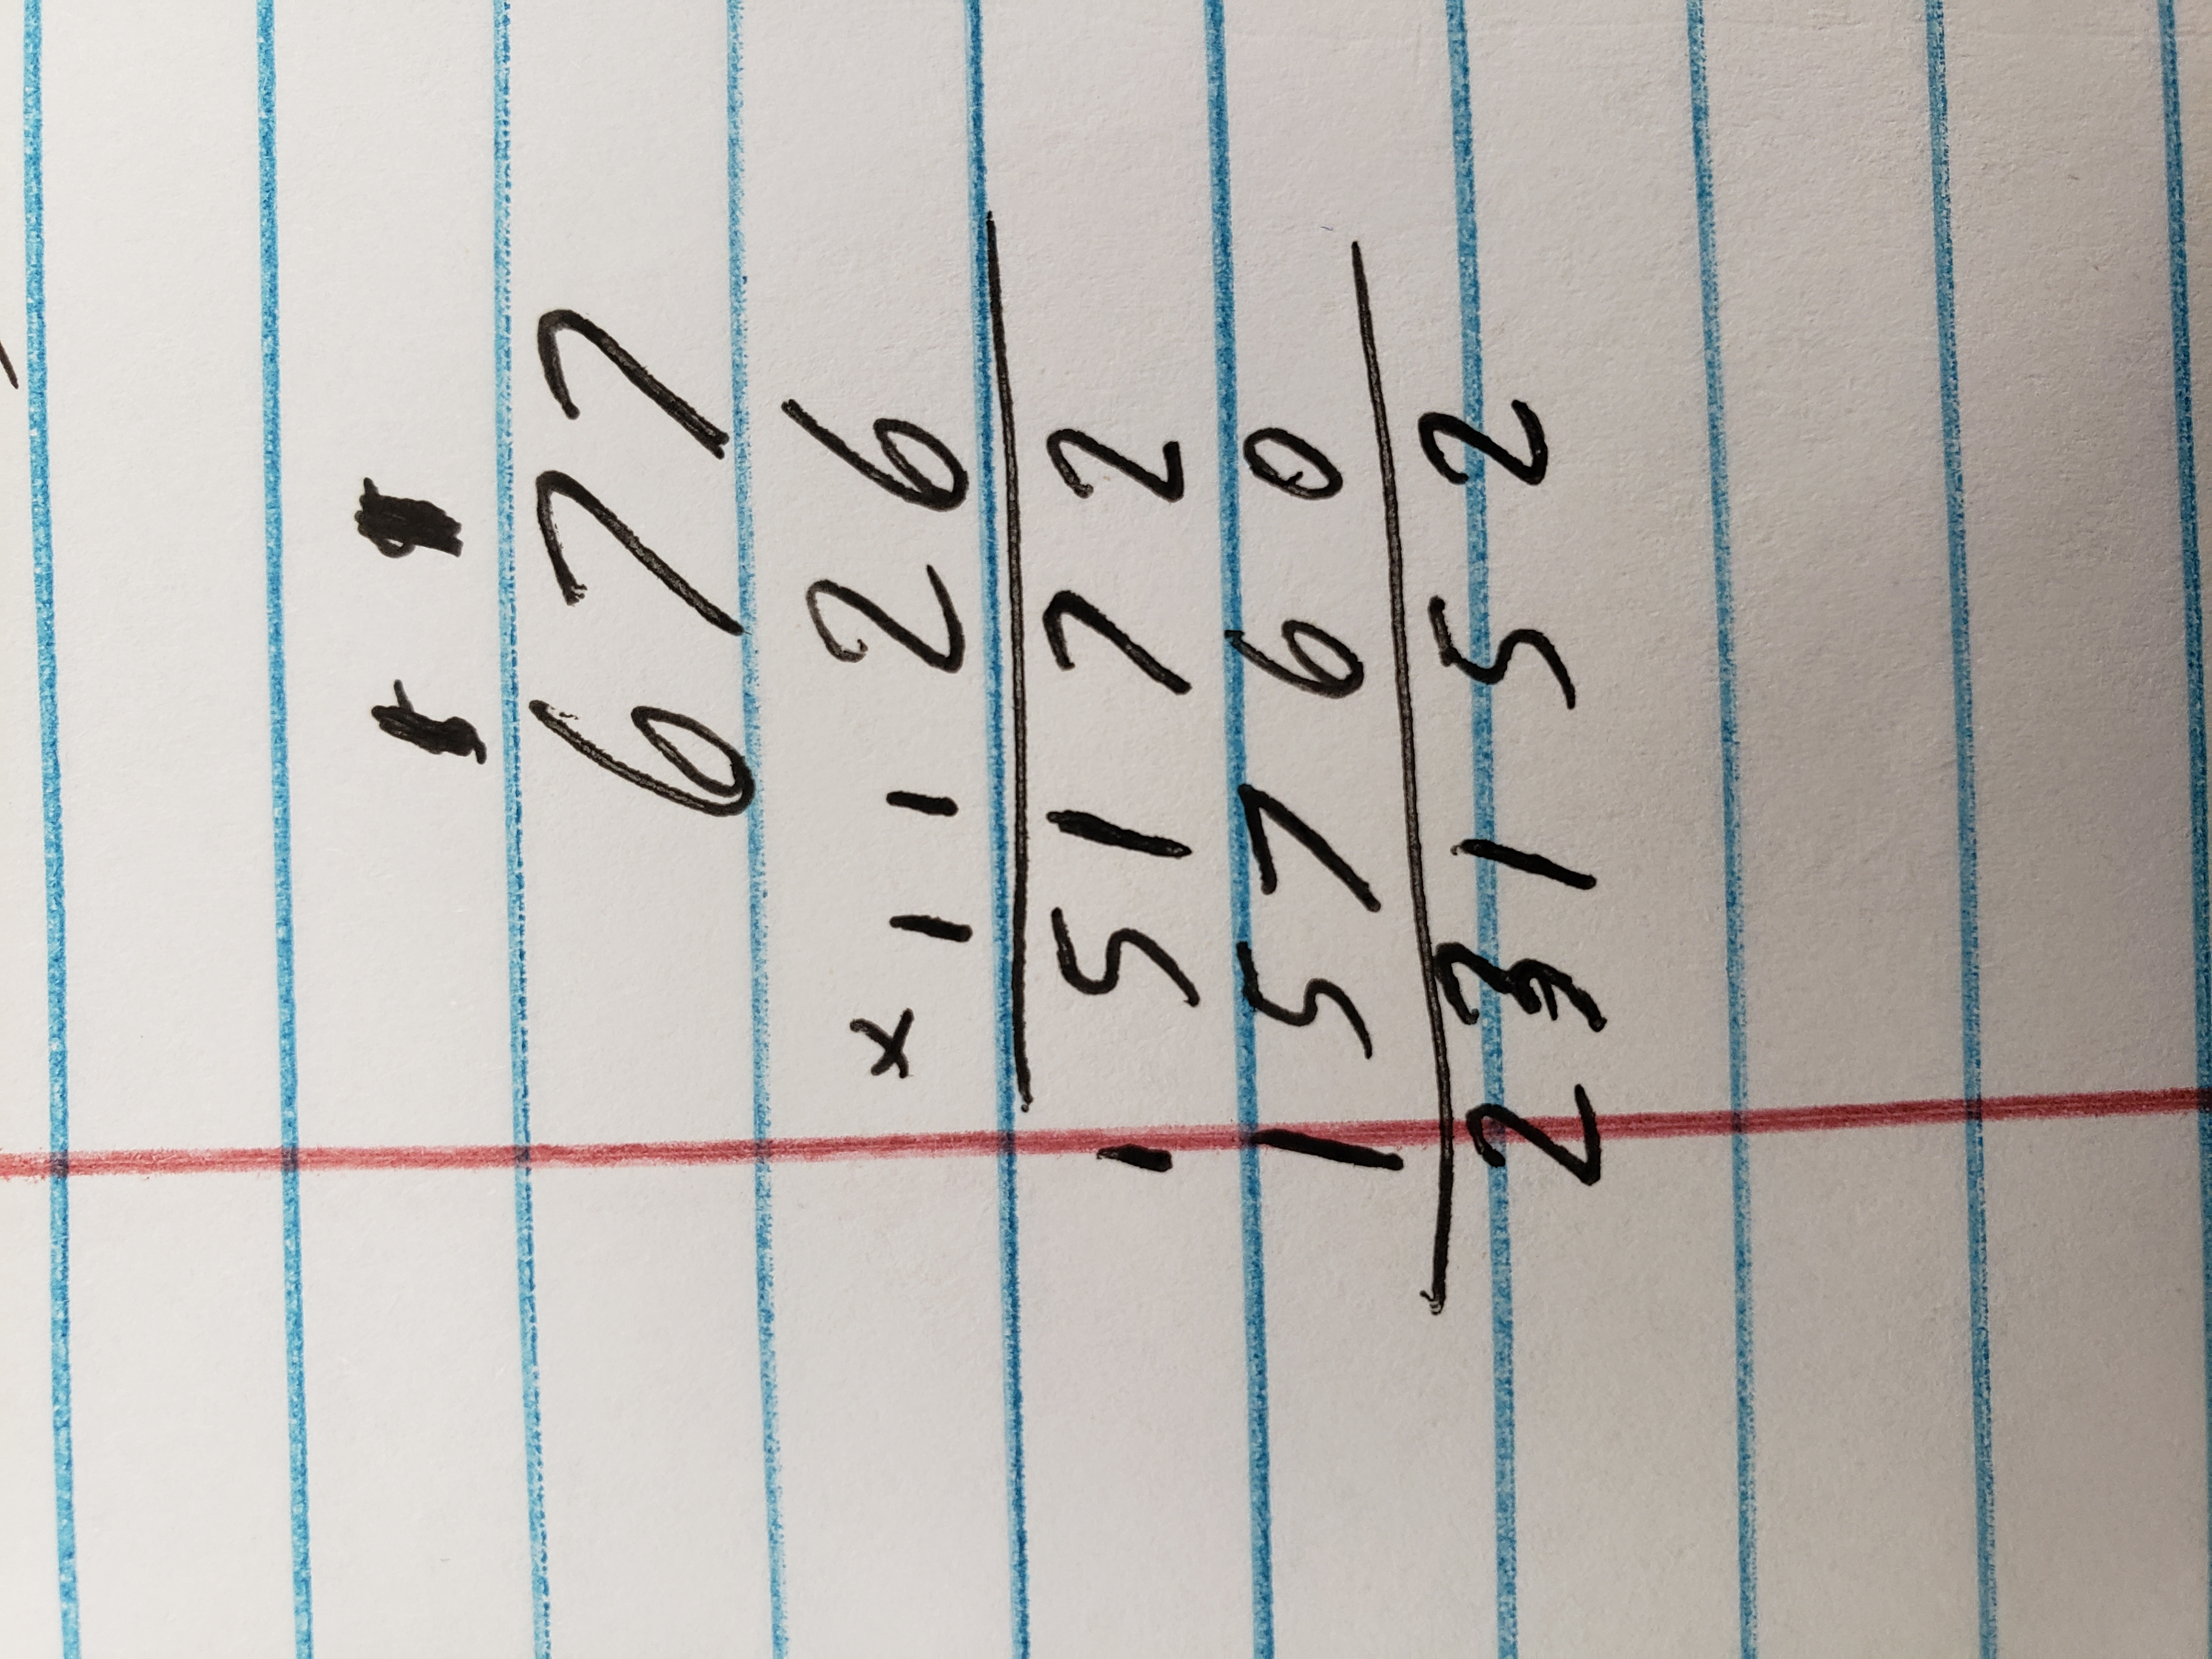 677
× 1 1 26
1 5172
15760
23152